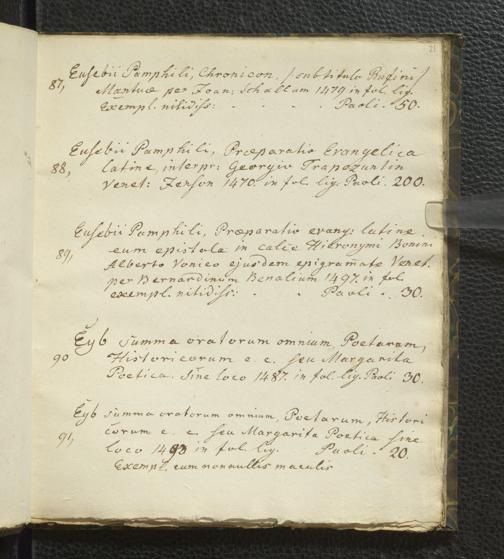 21
87, Eusebii Pamphili, Chronicon. / subtitulo Rufini /
Mantuæ per Joan: Schallum 1479 in fol. lig.
exempl. nitidiss: . . . . Paoli . 50.
88, Eusebii Pamphili, Præparatio Evangelica
latine, interpr: Georgio Trapezuntin
Venet: Jenson 1470. in fol. lig. Paoli. 200.
89, Eusebii Pamphili, Præparatio evang: latine
cum epistola in calce Hieronymi Bonini
Alberto Vonico ejusdem epigram̄ate Venet.
per Bernardinum Benalium 1497. in fol.
exempl. nitidiss: . . Paoli . 30.
90 Eyb summa oratorum omnium, Poetarum,
Historicorum e. c. seu Margarita
Poetica. Sine loco 1487. in fol. lig. Paoli 30.
91, Eyb summa oratorum omnium, Poetarum, Histori
corum e. c. seu Margarita Poetica sine
loco 1493 in fol. lig. Paoli . 20.
Exempl. cum nonnullis maculis